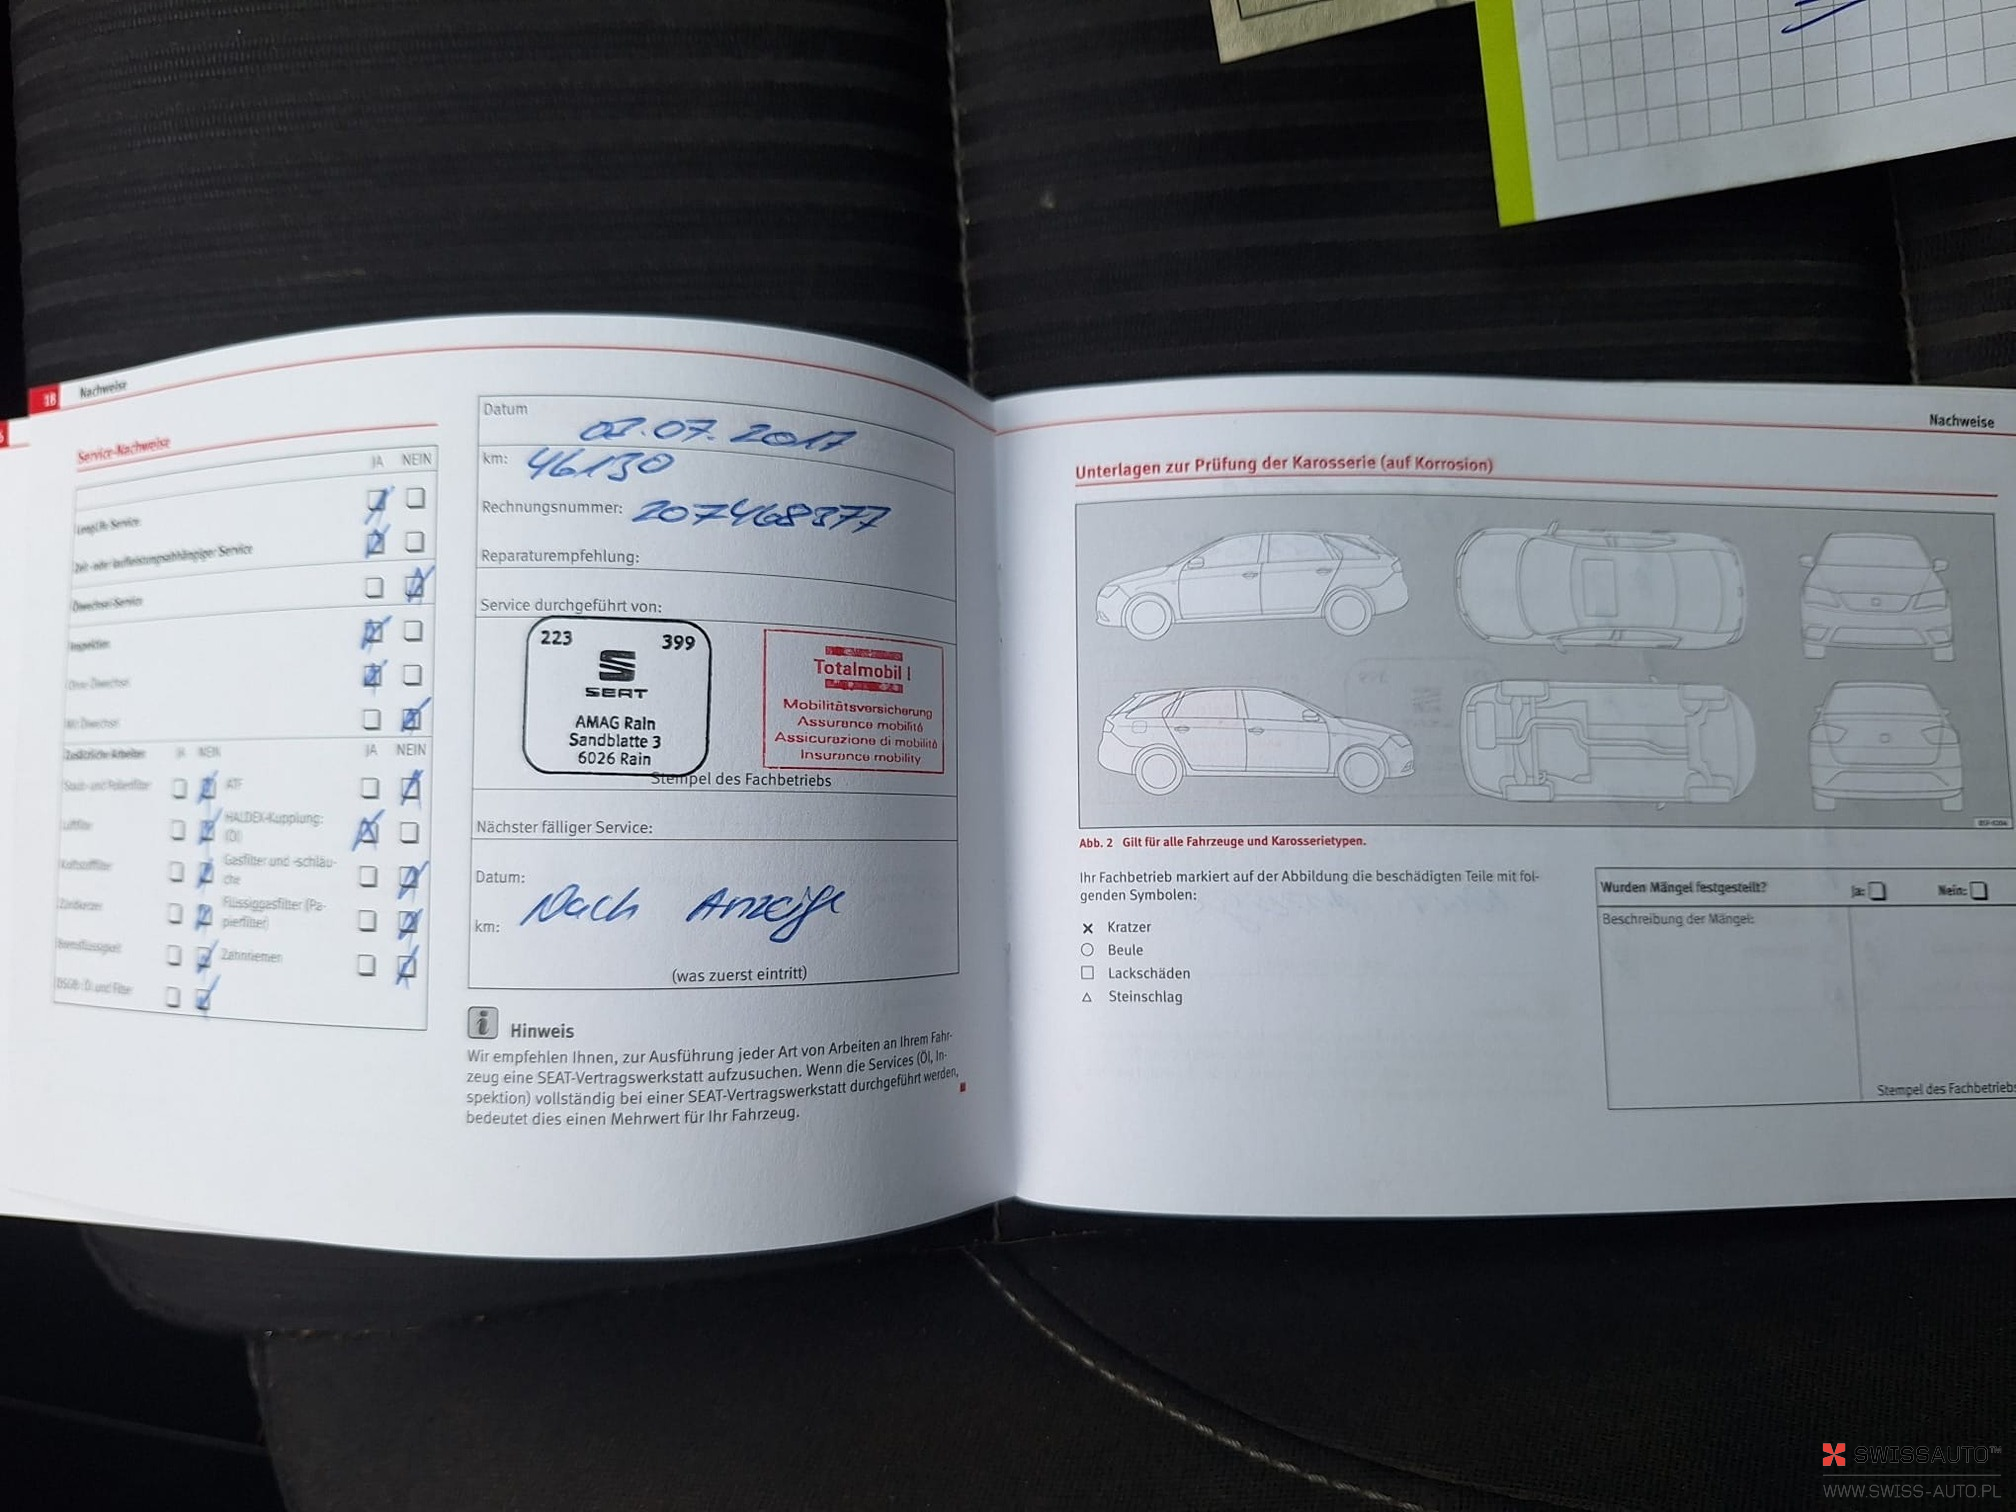 18 Nachweise
Service-Nachweise
JA NEIN
LongLife-Service
Zeit- oder laufleistungsabhängiger Service
Ölwechsel-Service
Inspektion
Ohne Ölwechsel
Mit Ölwechsel
Zusätzliche Arbeiten JA NEIN JA NEIN
Staub- und Pollenfilter ATF
Luftfilter HALDEX-Kupplung:
(Öl)
Kraftstofffilter Gasfilter und -schläu-
che
Zündkerzen Flüssiggasfilter (Pa-
pierfilter)
Bremsflüssigkeit Zahnriemen
DSG®: Öl und Filter
Datum
07.2017
km: 46130
Rechnungsnummer: 207468377
Reparaturempfehlung:
Service durchgeführt von:
223 399
SEAT
AMAG Rain
Sandblatte 3
6026 Rain
Totalmobil !
Mobilitätsversicherung
Assurance mobilité
Assicurazione di mobilità
Insurance mobility
Stempel des Fachbetriebs
Nächster fälliger Service:
Datum:
Nach Anzeige
km:
(was zuerst eintritt)
i Hinweis
Wir empfehlen Ihnen, zur Ausführung jeder Art von Arbeiten an Ihrem Fahr-
zeug eine SEAT-Vertragswerkstatt aufzusuchen. Wenn die Services (Öl, In-
spektion) vollständig bei einer SEAT-Vertragswerkstatt durchgeführt werden,
bedeutet dies einen Mehrwert für Ihr Fahrzeug.
Nachweise
Unterlagen zur Prüfung der Karosserie (auf Korrosion)
Abb. 2 Gilt für alle Fahrzeuge und Karosserietypen.
Ihr Fachbetrieb markiert auf der Abbildung die beschädigten Teile mit fol-
genden Symbolen:
Kratzer
Beule
Lackschäden
Steinschlag
Wurden Mängel festgestellt? Ja: Nein:
Beschreibung der Mängel:
Stempel des Fachbetriebs
SWISSAUTO™
WWW.SWISS-AUTO.PL